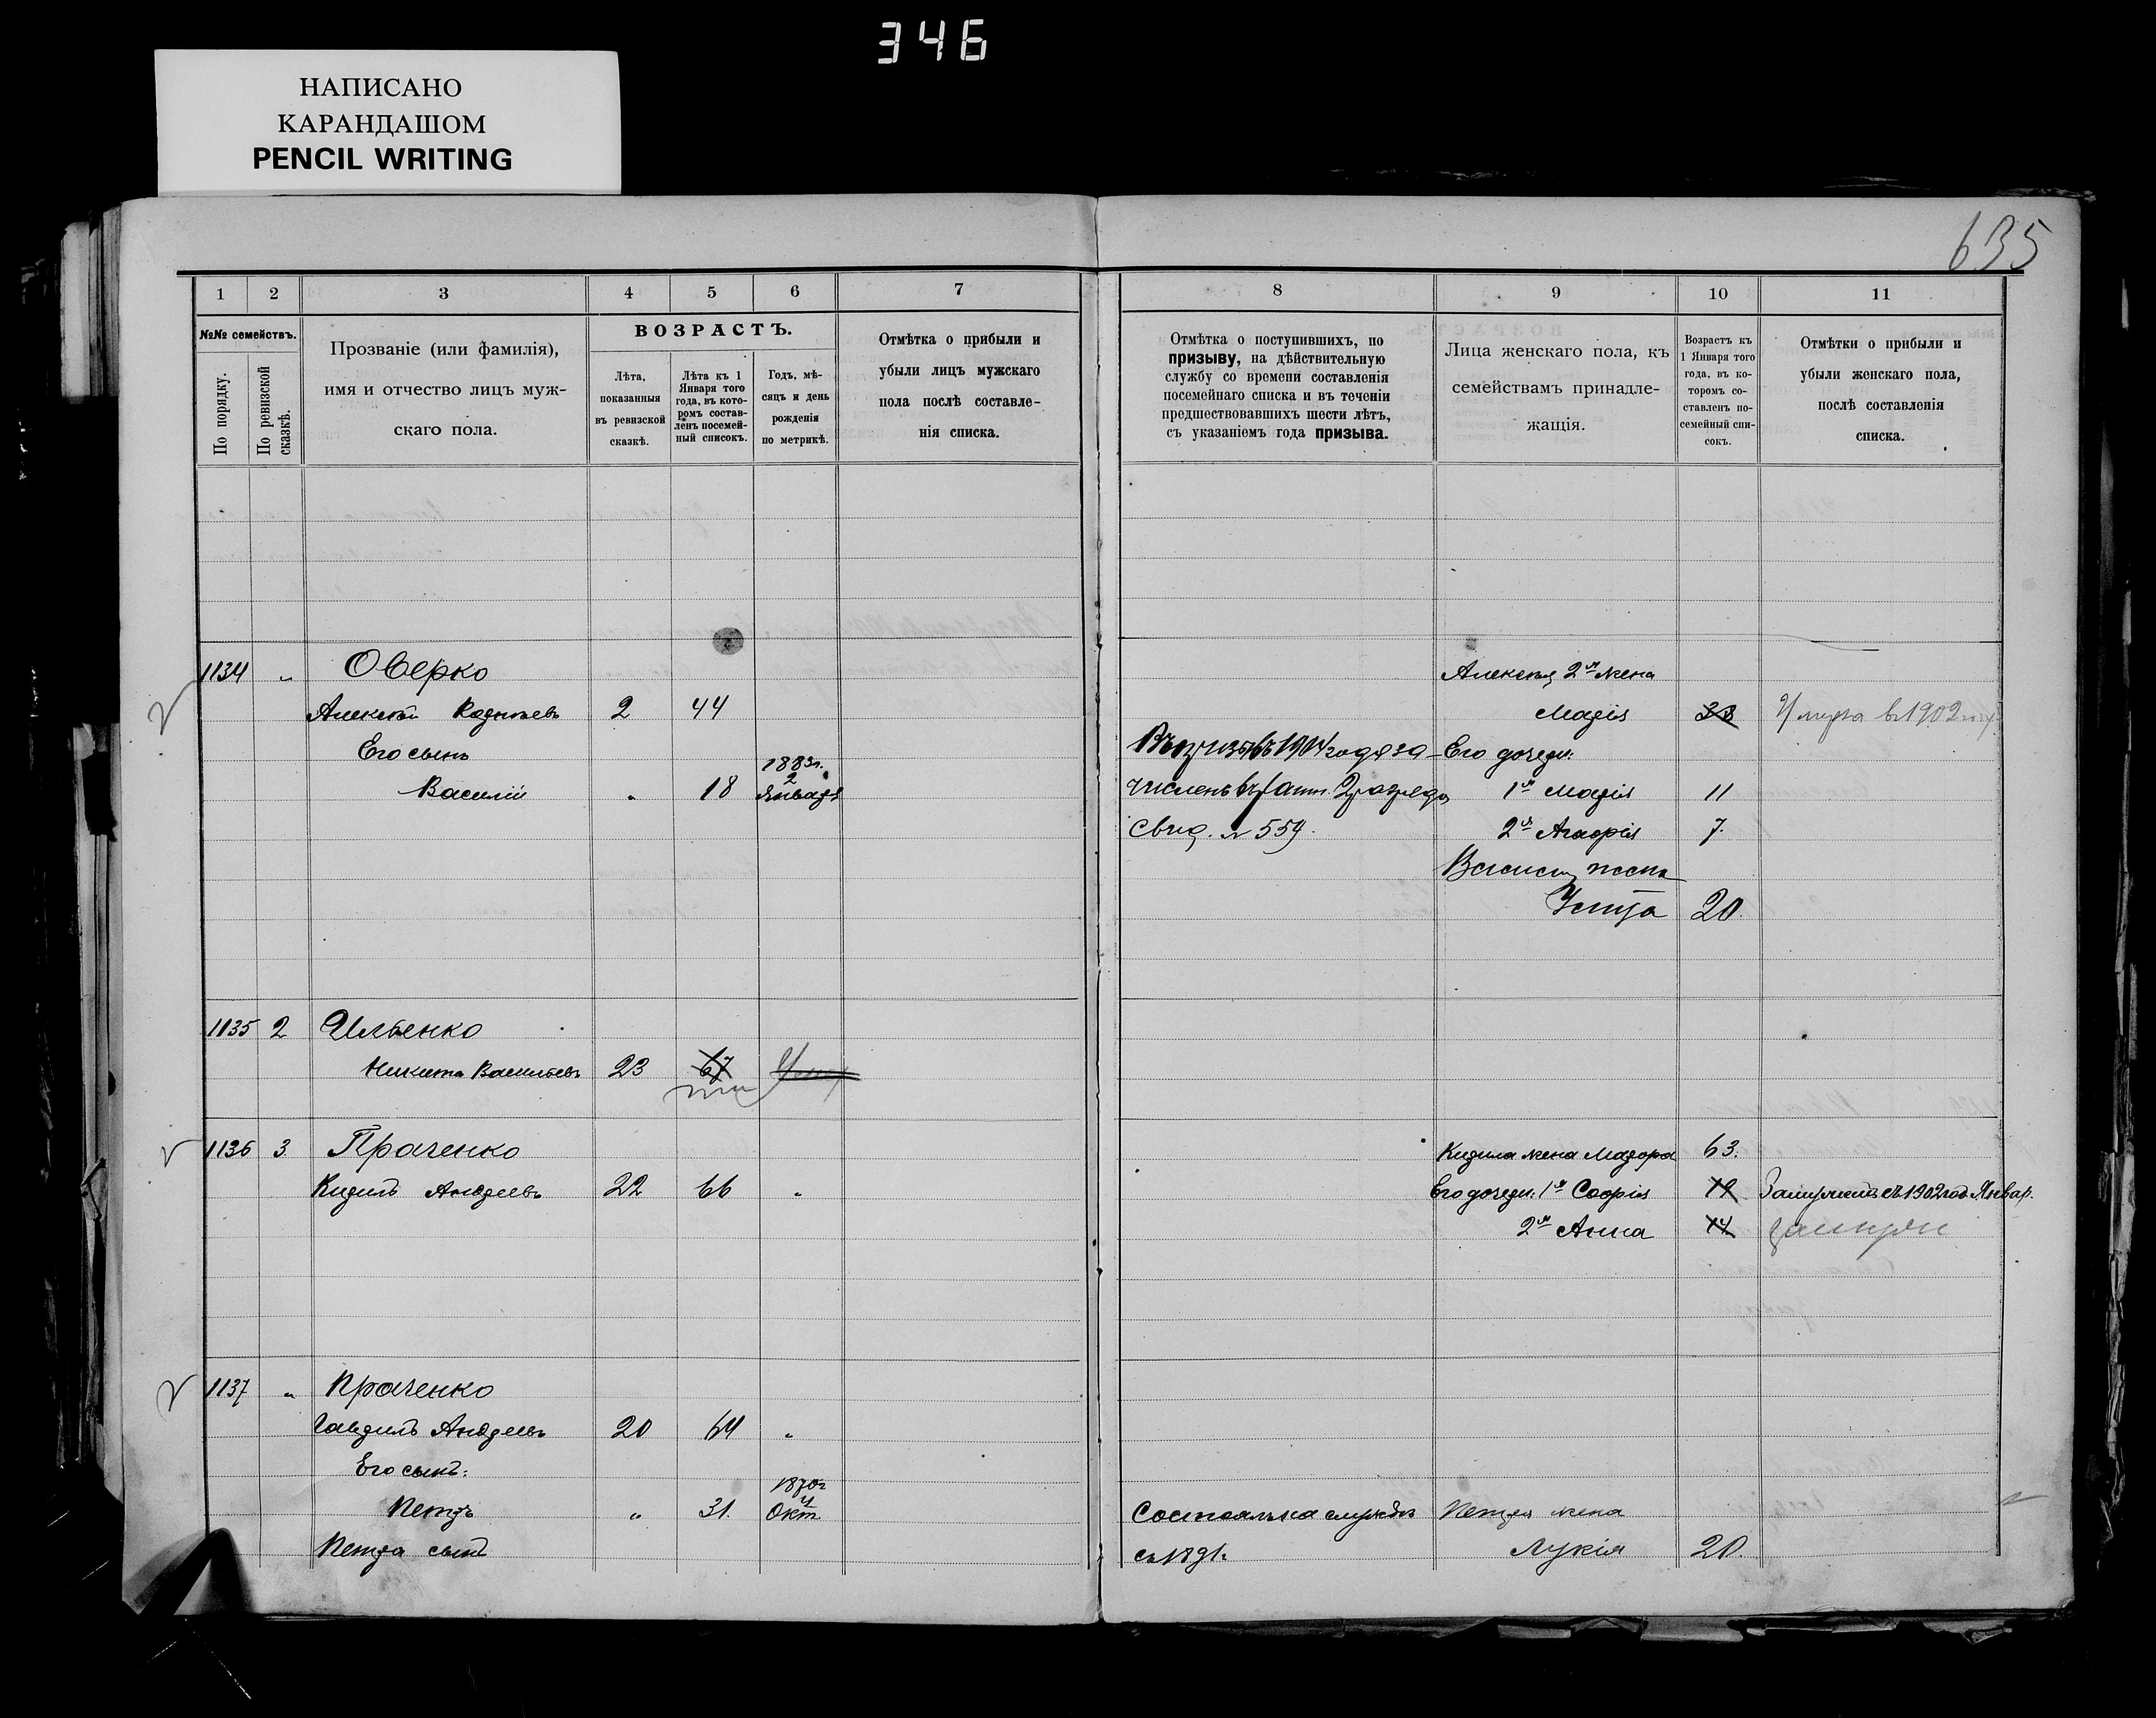 346
НАПИСАНО
КАРАНДАШОМ
PENCIL WRITING
635
1 2 3 4 5 6 7
№№ семействъ.
По порядку.
По ревизской сказкѣ.
Прозваніе (или фамилія),
имя и отчество лицъ муж-
скаго пола.
ВОЗРАСТЪ.
Лѣта,
показанныя
въ ревизской
сказкѣ.
Лѣта къ 1
Января того
года, въ кото-
ромъ состав-
ленъ посемей-
ный списокъ.
Годъ, мѣ-
сяцъ и день
рожденія
по метрикѣ.
Отмѣтка о прибыли и
убыли лицъ мужскаго
пола послѣ составле-
нія списка.
8 9 10 11
Отмѣтка о поступившихъ, по
призыву, на дѣйствительную
службу со времени составленія
посемейнаго списка и въ теченіи
предшествовавшихъ шести лѣтъ,
съ указаніемъ года призыва.
Лица женскаго пола, къ
семействамъ принадле-
жащія.
Возрастъ къ
1 Января того
года, въ ко-
торомъ со-
ставленъ по-
семейный спи-
сокъ.
Отмѣтки о прибыли и
убыли женскаго пола,
послѣ составленія
списка.
1134 " Оверко
Алексѣй 2 44
Его сынъ
1883г.
2
Василій " 18 Января
Алексѣя 2я жена
Марія 33 Умерла в 1902
Въ призывъ 1904 года за- Его дочери:
численъ въ 2 разряда 1я Марія 11
Свид. № 559. 2я Агафія 7.
жена
Устя 20.
1135 2 Ильенко
Никита Васильевъ 23 67
1136 3 Праченко
Кирилъ Андреевъ 22 66 "
Кирила жена 63.
Его дочери: 1я Софія 19 съ 1902 год. Январ.
2я Анна 14
1137 " Праченко
Гаврилъ Андреевъ 20 64 "
Его сынъ:
1870г
4
Петръ " 31. Окт.
Петра сынъ
Состоялъ на службѣ Петра жена
съ 1891. Лукія 20.